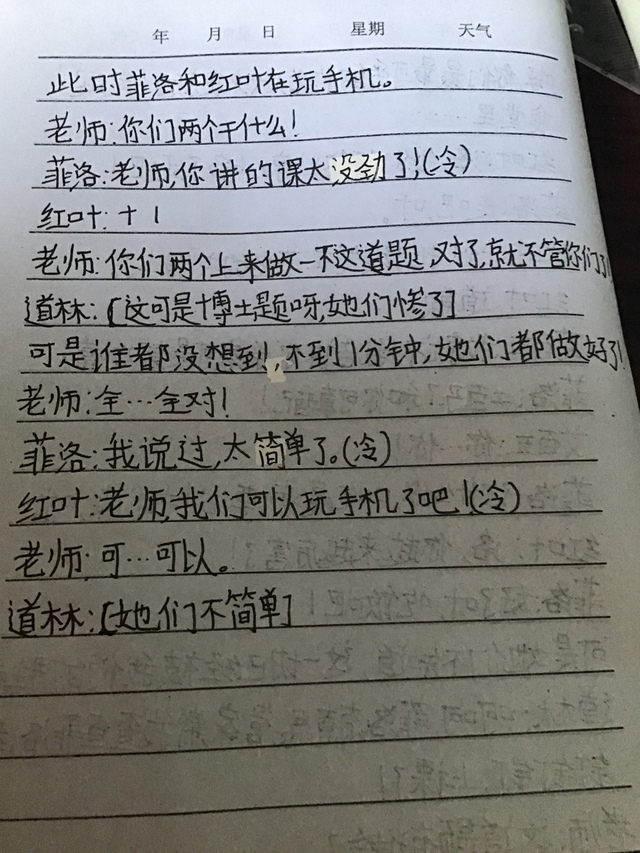 年 月 日 星期 天气
此时菲洛和红叶在玩手机。
老师:你们两个干什么!
菲洛:老师,你讲的课太没劲了!(冷)
红叶:+1
老师:你们两个上来做一不这道题,对了,就不管你们了!
道林:[这可是博士题呀,她们惨了]
可是谁都没想到,不到1分钟,她们都做好了!
老师:全…全对!
菲洛:我说过,太简单了。(冷)
红叶:老师,我们可以玩手机了吧!(冷)
老师:可…可以。
道林:[她们不简单]